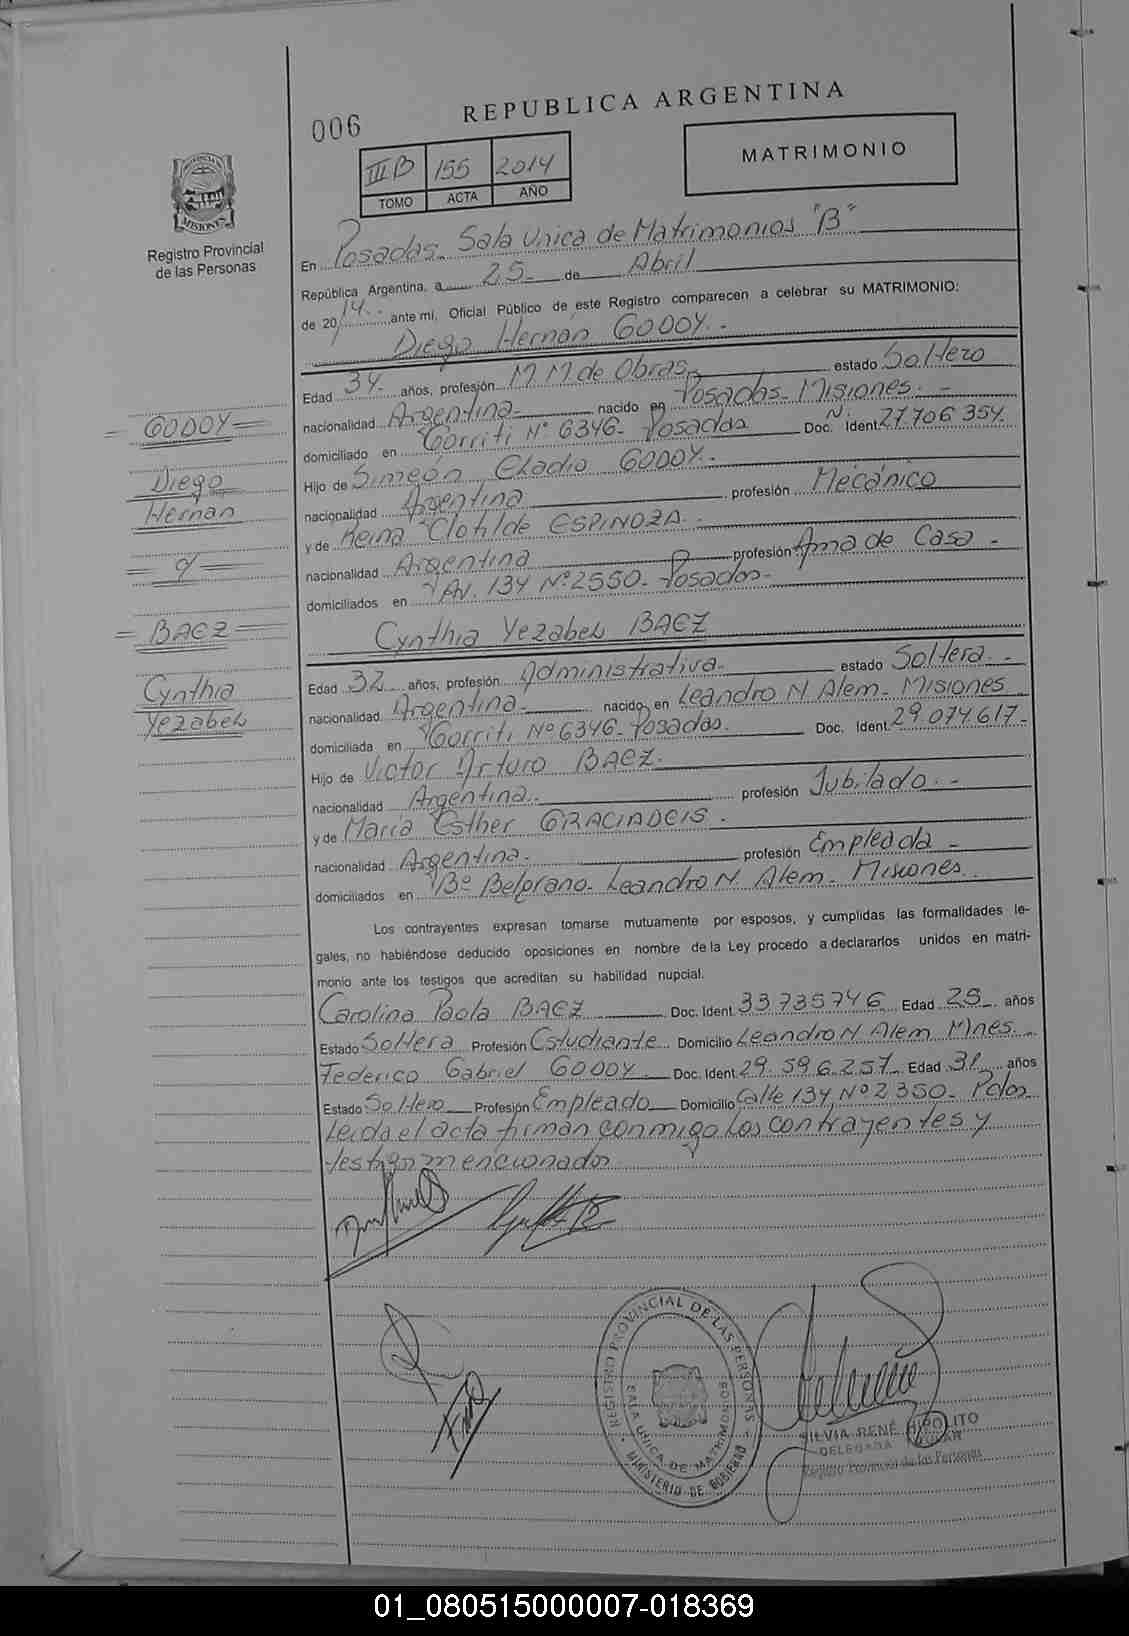 REPUBLICA ARGENTINA
006
III B 155 2014
TOMO ACTA AÑO
MATRIMONIO
PROVINCIA DE
MISIONES
Registro Provincial
de las Personas
En Posadas. Sala Unica de Matrimonios "B"
República Argentina, a 25 de Abril
de 2014. ante mi, Oficial Público de este Registro comparecen a celebrar su MATRIMONIO:
Diego Hernán GODOY.
Edad 34 años, profesión M M de Obras estado Soltero
nacionalidad Argentina nacido en Posadas. Misiones.
domiciliado en Gorriti Nº 6346. Posadas Doc. Ident. 27.706.354
Hijo de Simeón Eladio GODOY.
nacionalidad Argentina profesión Mecánico
y de Reina Clotilde ESPINOZA.
nacionalidad Argentina profesión Ama de Casa
domiciliados en AV. 134 Nº 2550. Posadas
= GODOY =
Diego
Hernán
= y =
= BAEZ =
Cynthia
Yezabel
Cynthia Yezabel BAEZ
Edad 32 años, profesión Administrativa. estado Soltera.
nacionalidad Argentina nacido en Leandro N. Alem. Misiones
domiciliada en Gorriti Nº 6346. Posadas. Doc. Ident. 29.074.617
Hijo de Victor Arturo BAEZ.
nacionalidad Argentina. profesión Jubilado.
y de María Esther GRACIADEIS.
nacionalidad Argentina. profesión Empleada
domiciliados en Bº Belgrano. Leandro N. Alem. Misiones.
Los contrayentes expresan tomarse mutuamente por esposos, y cumplidas las formalidades le-
gales, no habiéndose deducido oposiciones en nombre de la Ley procedo a declararlos unidos en matri-
monio ante los testigos que acreditan su habilidad nupcial.
Carolina Paola BAEZ Doc. Ident. 33735746 Edad 25 años
Estado Soltera Profesión Estudiante Domicilio Leandro N Alem Mnes.
Federico Gabriel GODOY. Doc. Ident. 29.596.257 Edad 31 años
Estado Soltero Profesión Empleado Domicilio Calle 134 Nº 2350. Pdas
Leida el acta firman conmigo los contrayentes y
testigos mencionados
REGISTRO PROVINCIAL DE LAS PERSONAS
SALA UNICA DE MATRIMONIOS
MINISTERIO DE GOBIERNO
SILVIA RENÉ HIPOLITO
DELEGADA
Registro Provincial de las Personas
01_080515000007-018369